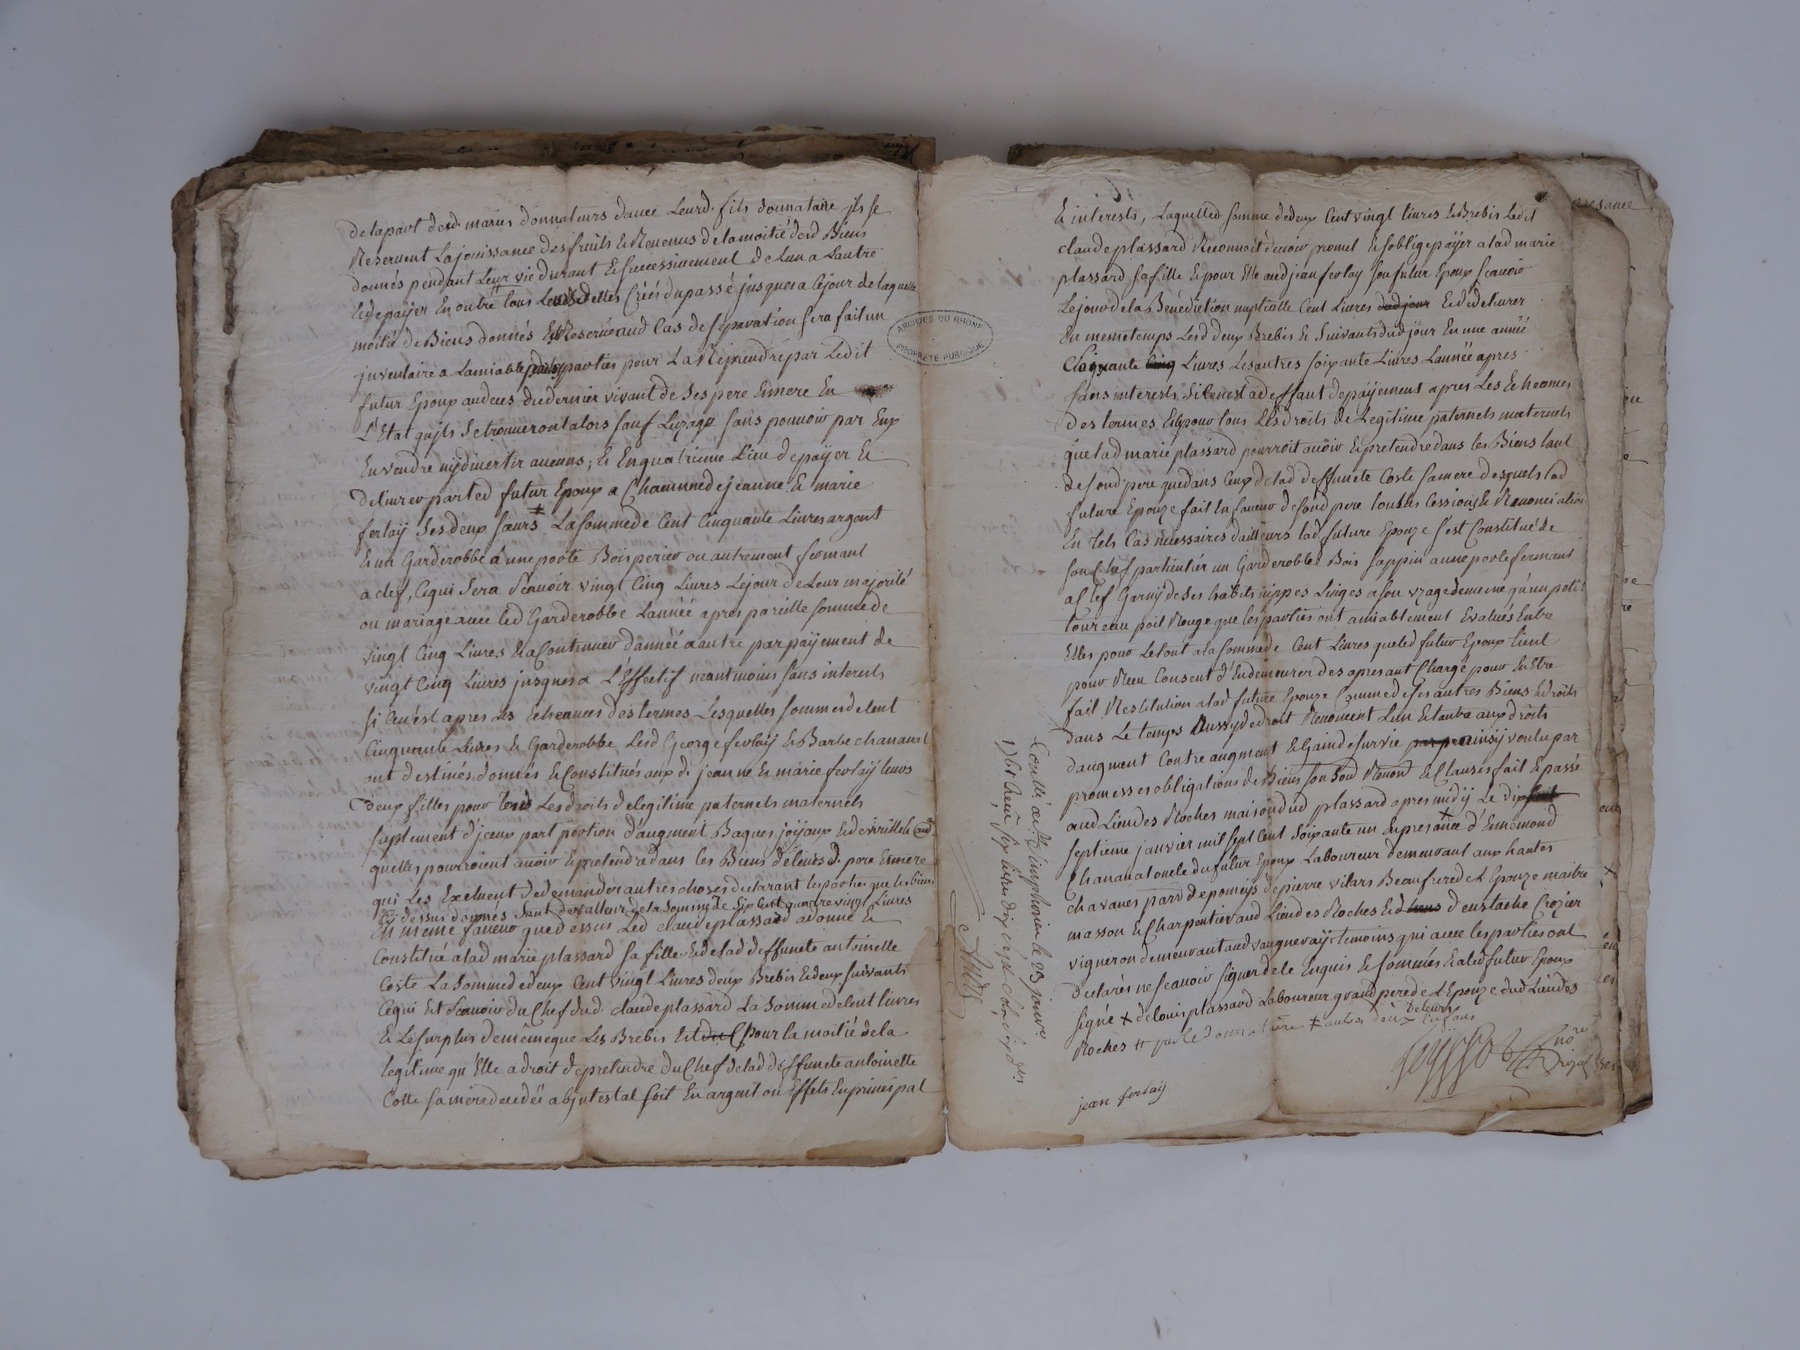 de la part desd. mariés donnateurs d'avec Leurd. fils donnataire ils se
Reservent La jouissance des fruits & Revenus de la moitié desd Biens
donnés pendant Leur vie durant & successivement de L'un a L'autre
de payer En outre tous Cries du passé jusques a ce jour de laquelle
moitié de Biens donnés & Reservé aud Cas de separation sera fait un
inventaire a L'amiable parties pour La Reprendre par Ledit
futur Epoux au deces du dernier vivant de ses pere & mere En
L'Etat qu'ils se trouveront alors sauf L'uzage sans pouvoir par Eux
En vendre ny divertir aucuns; & En quatrieme Lieu de payer &
delivrer par led futur Epoux a Chacunne de jeanne & marie
ferlay ses deux sœurs La somme de Cent Cinquante Livres argent
& un Garderobbe a une porte Bois perier ou autrement fermant
a clef, Ce qui sera sçavoir vingt Cinq Livres Le jour de Leur majorité
ou mariage avec led Garderobbe L'année apres pareille somme de
vingt Cinq Livres & a Continuer d'année a autre par payement de
vingt Cinq Livres jusques a L'Effectif neantmoins sans interets
si Ce n'est apres Les Echeances des termes Lesquelles sommes de Cent
Cinquante Livres & Garderobbe Lesd George ferlay & Barbe chanavat
ont destinés donnés & Constitués aux d. jeanne & marie ferlay leurs
deux filles pour tous Les droits de legitime paternels maternels
suplement d'jceux part portion d'augment Bagues joyaux & de
quelles pourroient avoir & pretendre dans les Biens de leurs d. pere & mere
qui Les Excluent de demander autres choses declarant les parties que les biens
cy dessus donnés sont de valleur de la somme de six Cent quatre vingt Livres
En même faveur que dessus Led claude plassard a donné &
Constitué a lad marie plassard sa fille & de lad deffuncte antoinette
Coste La somme de deux Cent vingt Livres deux Brebis & deux suivants
Ce qui Est sçavoir du Chef dud. claude plassard La somme de Cent livres
& Le surplus de même que Les Brebis Est pour la moitié de la
legitime qu'Elle a droit de pretendre du Chef de lad deffuncte antoinette
Coste sa mere decedée abjntestat soit En argent ou Effets En principal
ARCHIVES DU RHONE
PROPRIÉTÉ PUBLIQUE
& interests, Laquelle d. somme de deux Cent vingt livres & Brebis Ledit
claude plassard Reconnoit devoir promet & s'oblige payer a lad marie
plassard sa fille & pour Elle aud jean ferlay son futur Epoux sçavoir
Le jour de la Benediction nuptialle Cent Livres dud jour & de delivrer
En meme temps Lesd deux Brebis & suivants dud jour En une année
Cinquante Cinq Livres Les autres soixante Livres L'année apres
sans interests si Ce n'est a deffaut de payement apres Les Echeances
des termes & pour tous Les droits de Legitime paternels maternels
que lad marie plassard pourroit avoir & pretendre dans les Biens tant
de sond pere que dans Ceux de lad deffuncte Coste sa mere desquels lad
future Epouze fait En faveur de sond pere toutes Cessions & Renonciation
En tels Cas necessaires d'ailleurs lad future Epouze s'est Constituée de
son Chef particulier un Garderobbe Bois sappin a une porte fermant
a Clef Garny de ses habits nippes Linges a son uzage de meme qu'un petit
toureau poil Rouge que les parties ont amiablement Evalués Entre
Elles pour Le tout a la somme de Cent Livres que led futur Epoux tient
pour Reçu Consent d'En demeurer des apresant Chargé pour En Etre
fait Restitution a lad future Epouze Comme de ses autres Biens & droits
dans Le temps Aussy de droit Renoncent L'un & L'autre aux droits
d'augment Contre augment & Gain de survie ainsy voulu par
promesses obligations des Biens son sond Renont & Clauses fait & passé
aud Lieu des Roches maison dud plassard apres midy Le dix
septieme janvier mil sept Cent soixante un En presence d'Ennemond
Chanavat oncle du futur Epoux Laboureur demeurant aux hautes
chavanes parr. de pomeys de pierre vilars Beaufrere de L'Epouze maitre
masson & Charpentier aud Lieu des Roches & d'eustache Crozier
vigneron demeurant aud vaugneray temoins qui avec les parties ont
declarés ne sçavoir signer de ce Enquis & sommés & a led futur Epoux
signé + de louis plassard Laboureur grand pere de L'Epouze dud Lieu des
Roches
jean ferlay
Conllé a St simphorien le 23 janvr
1761 Reçu six livres dix sept sols